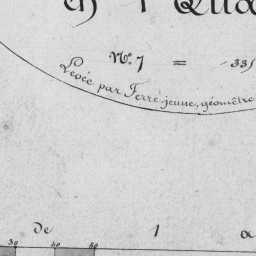 en 1
N.º 7 =
Levée par Ferré jeune, géomètre
de 1 a
30 40 50